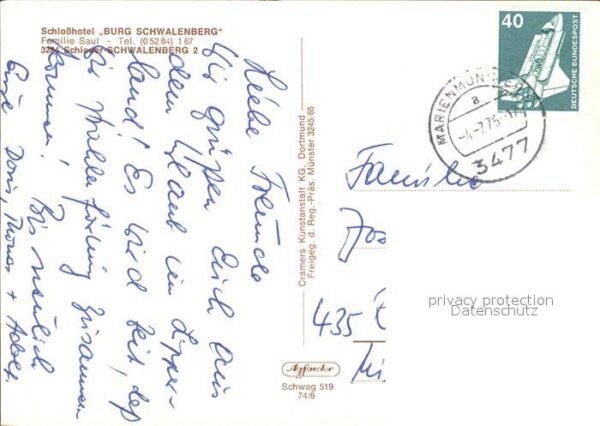 Schloßhotel „BURG SCHWALENBERG"
Familie Saul - Tel. (05284) 167
3284 Schieder-SCHWALENBERG 2
Liebe Freunde
Wir grüßen Euch aus
dem Urlaub im Lipper-
land! Es wird Zeit, daß
wir mal wieder
zusammen
kommen! Bis neulich
Eure Doris, Thomas + Adolf.
Cramers Kunstanstalt KG, Dortmund
Freigeg. d. Reg.-Präs. Münster 3245/65
40
DEUTSCHE BUNDESPOST
MARIENMÜNSTER
a
3477
Familie
435
privacy protection
Datenschutz
Schwag 519
74/6